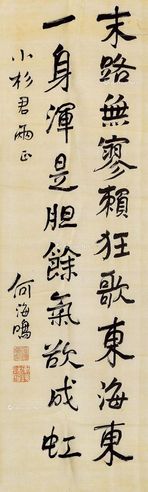 末路無寥賴狂歌東海東
一身渾是胆餘氣欲成虹
小杉君雨正
何海鳴